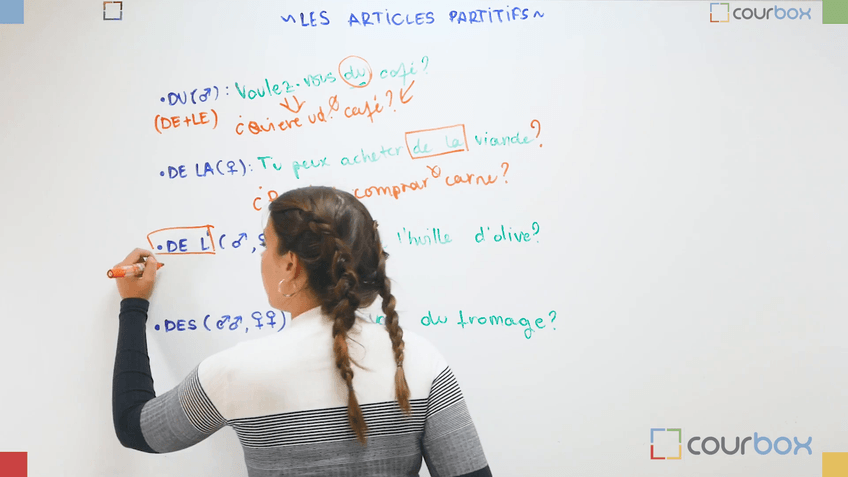 courbox
~LES ARTICLES PARTITIFS~
•DU(♂): Voulez-vous du café?
(DE+LE) ¿Quiere ud. Ø café?
•DE LA(♀): Tu peux acheter de la viande?
comprar Ø carne?
•DE L' (♂, l'huille d'olive?
•DES (♂♂, ♀♀) du fromage?
courbox